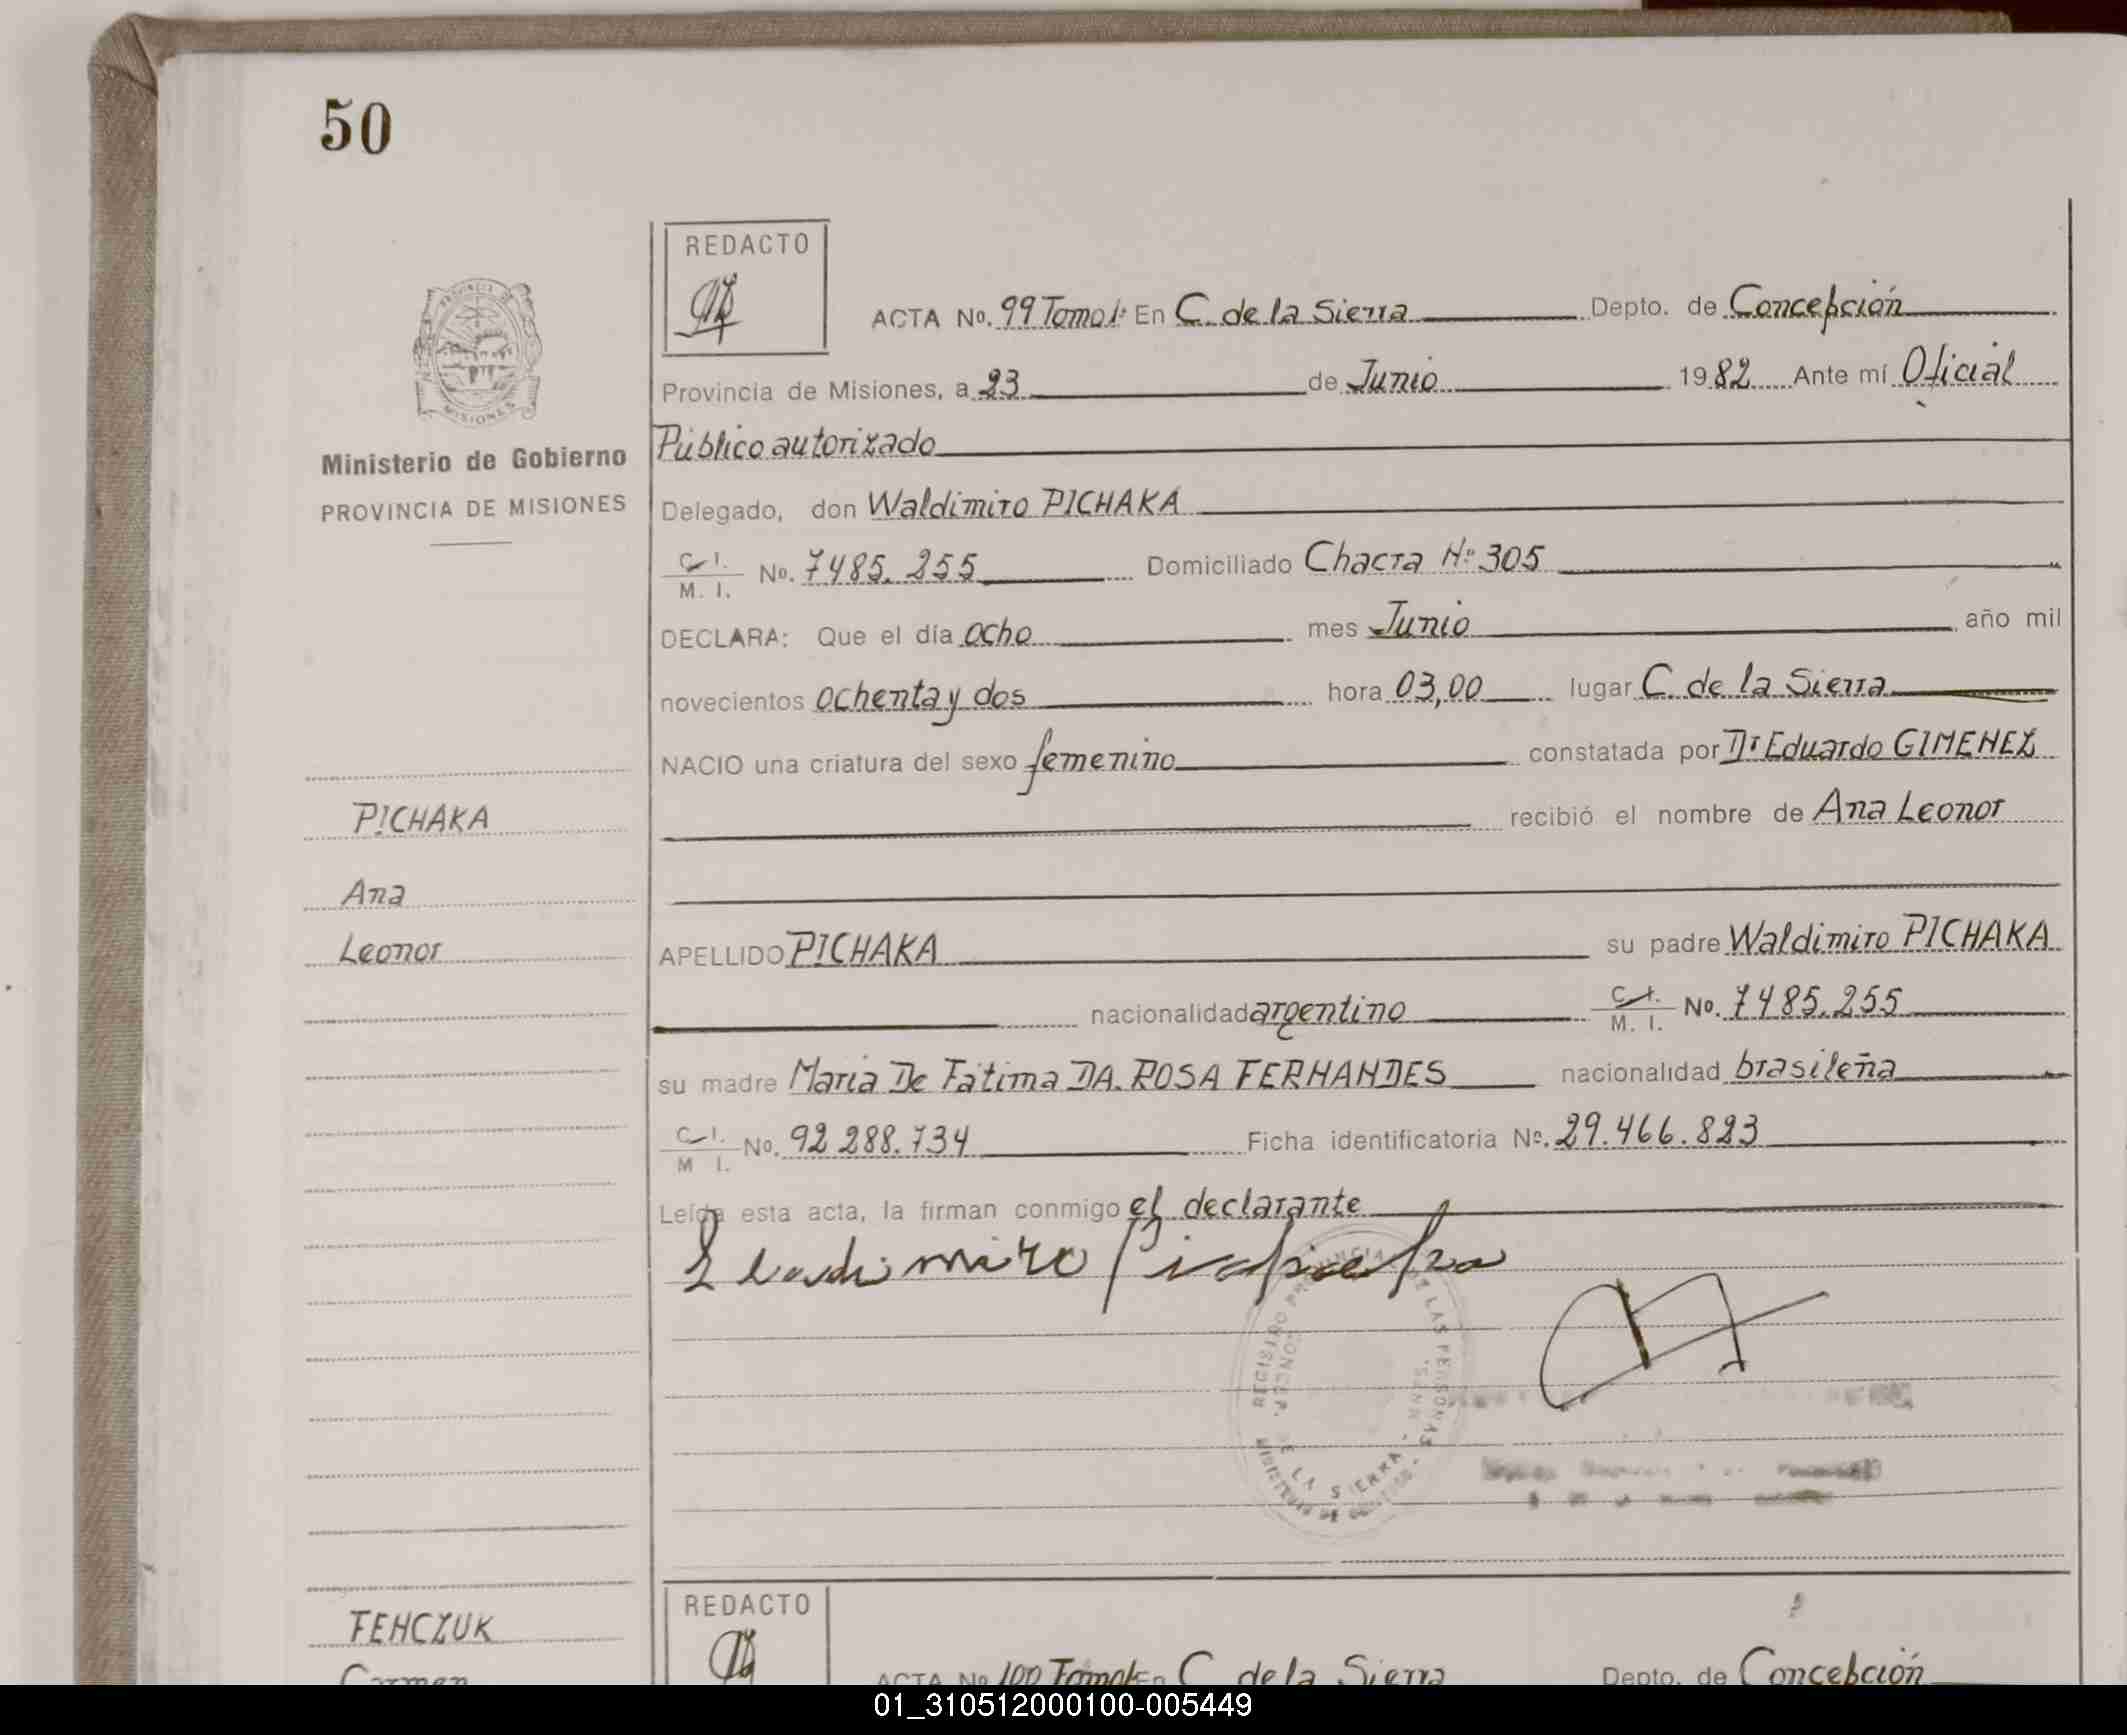 50
REDACTO
ACTA No. 99 Tomo 1º En C. de la Sierra Depto. de Concepción
Provincia de Misiones, a 23 de Junio 1982 Ante mí Oficial
Público autorizado
Ministerio de Gobierno
PROVINCIA DE MISIONES
Delegado, don Waldimiro PICHAKA
C. I.
M. I. No. 7485.255 Domiciliado Chacra Nº 305
DECLARA: Que el día ocho mes Junio año mil
novecientos ochenta y dos hora 03,00 lugar C. de la Sierra
NACIO una criatura del sexo femenino constatada por Dr Eduardo GIMENEZ
PICHAKA
recibió el nombre de Ana Leonor
Ana
Leonor
APELLIDO PICHAKA su padre Waldimiro PICHAKA
nacionalidad argentino C. I.
M. I. No. 7485.255
su madre Maria De Fátima DA. ROSA FERNANDES nacionalidad brasileña
C. I.
M I. No. 92 288.734 Ficha identificatoria No. 29.466.823
Leída esta acta, la firman conmigo el declarante
PROVINCIA DE MISIONES
REGISTRO PROVINCIAL DE LAS PERSONAS
LA SIERRA
FENCZUK
Carmen
REDACTO
ACTA No 100 Tomo 1º En C. de la Sierra Depto. de Concepción
01_310512000100-005449